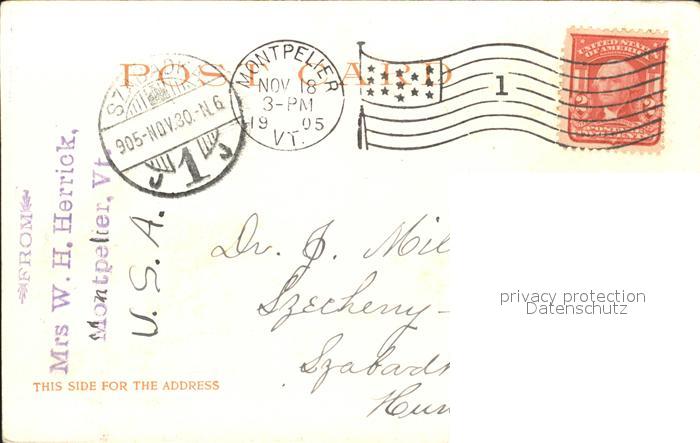 POST CARD
MONTPELIER
NOV 18
3-PM
19 05
VT.
1
UNITED STATES
OF AMERICA
2 2
905-NOV.30.-N.6
J 1 J
FROM
Mrs W. H. Herrick,
Montpelier, Vt.
U. S. A.
Dr. J. Mil
Szecheny-
Szabads
Hun
privacy protection
Datenschutz
THIS SIDE FOR THE ADDRESS